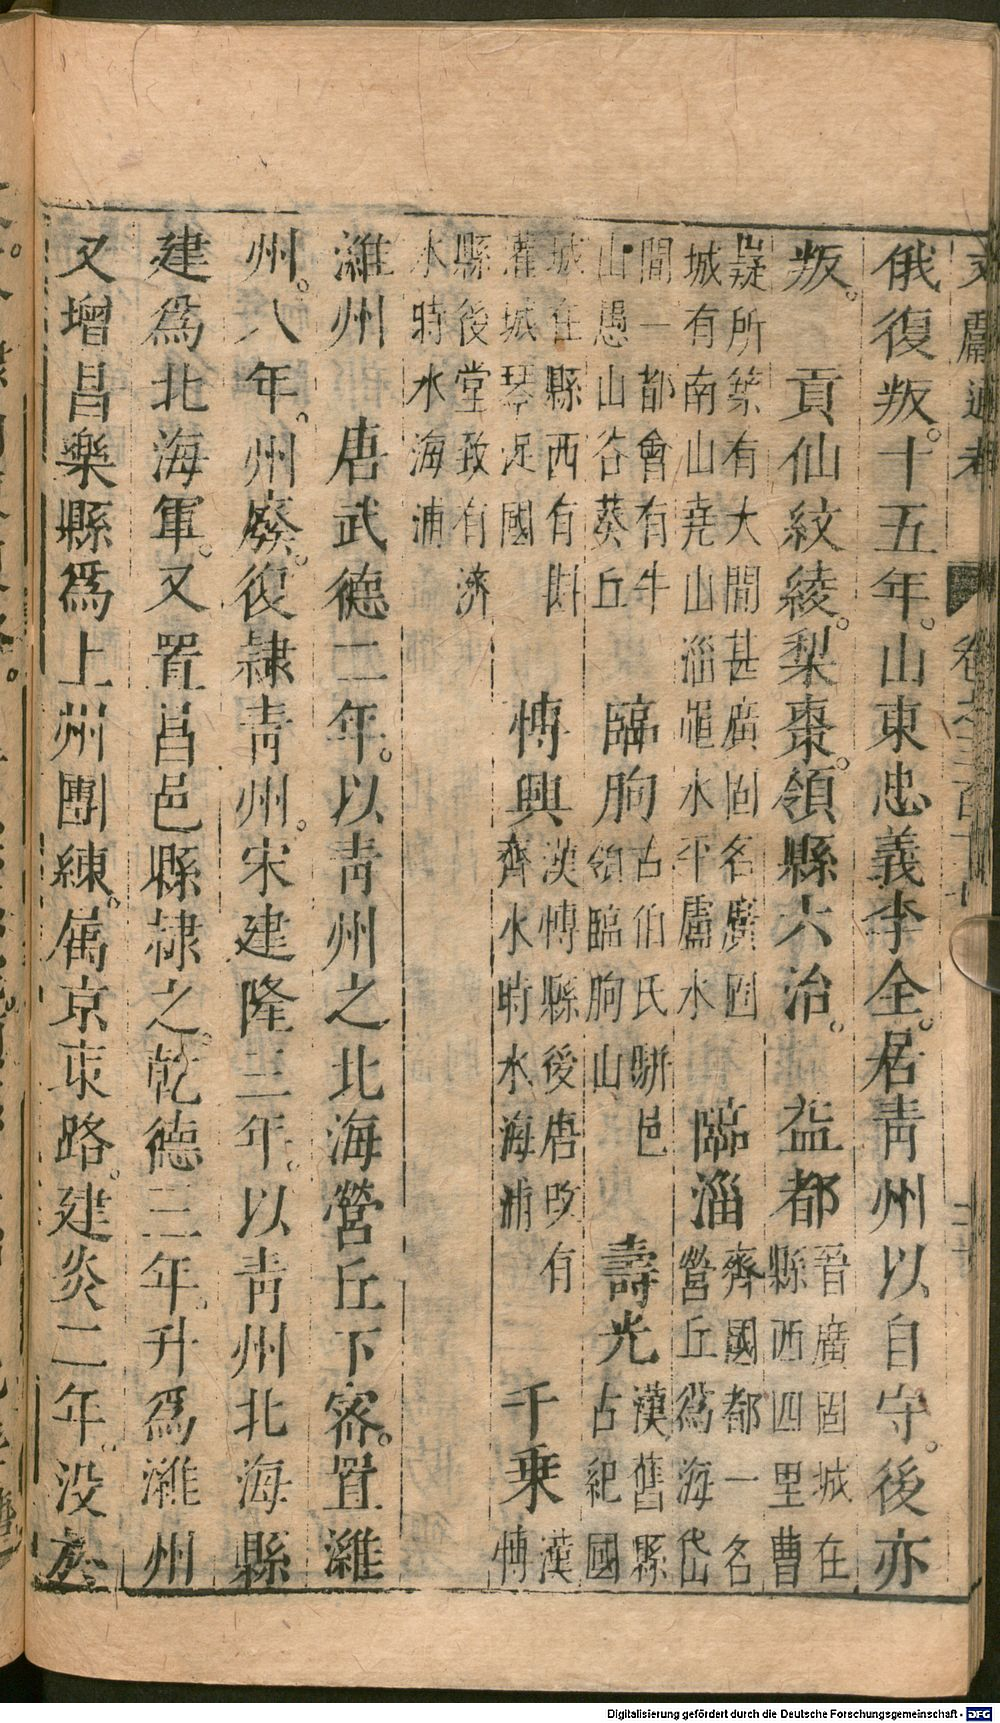 文獻通考 卷之三百十七
俄復叛。十五年。山東忠義李全。居青州以自守。後亦
叛。 貢仙紋綾。梨棗。領縣六治。 益都 晉廣固城在
縣西四里曹
嶷所築有大㵎甚廣固名廣固 臨淄 齊國都一名
營丘爲海岱
城有南山堯山淄澠水平盧水
間一都會有牛
山愚山谷葵丘 臨朐 古伯氏駢邑
領臨朐山 壽光 漢舊縣
古紀國
城在縣西有斟
灌城琴浞國 博興 漢博縣後唐改有
濟水時水海浦 千乘 漢
博
縣後堂致有濟
水時水海浦
濰州 唐武德二年。以青州之北海營丘下密。置濰
州。八年。州廢。復隷青州。宋建隆三年。以青州北海縣
建爲北海軍。又置昌邑縣隷之。乾德三年。升爲濰州
又增昌樂縣爲上州團練。属京東路。建炎二年。没於
Digitalisierung gefördert durch die Deutsche Forschungsgemeinschaft - DFG